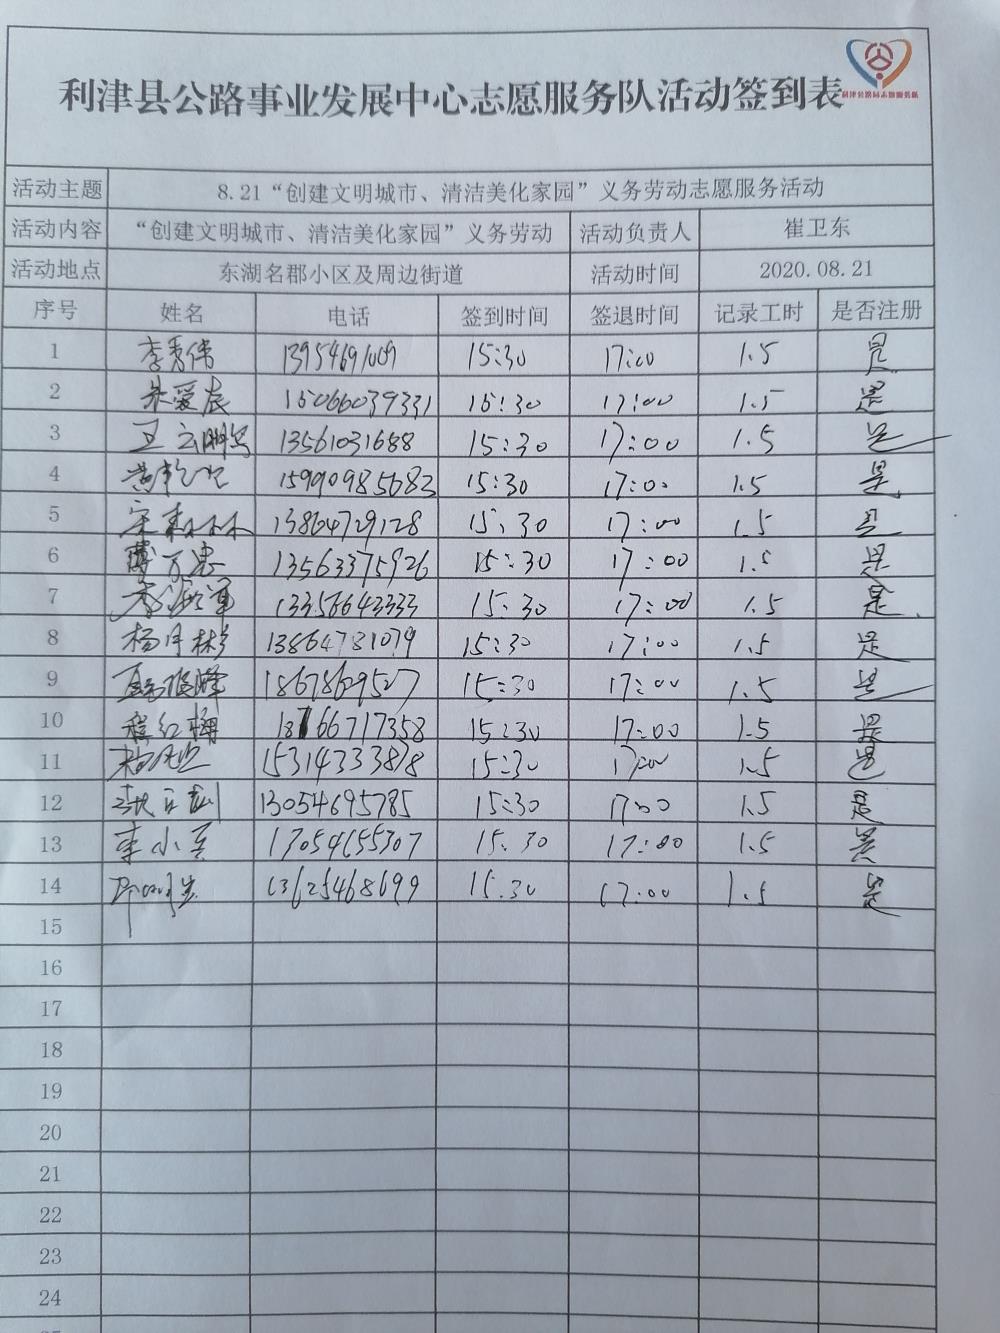 利津县公路事业发展中心志愿服务队活动签到表
利津公路局志愿服务队
活动主题 8.21“创建文明城市、清洁美化家园”义务劳动志愿服务活动
活动内容 “创建文明城市、清洁美化家园”义务劳动 活动负责人 崔卫东
活动地点 东湖名郡小区及周边街道 活动时间 2020.08.21
序号 姓名 电话 签到时间 签退时间 记录工时 是否注册
1 李秀伟 13954691009 15:30 17:00 1.5 是
2 朱爱辰 15066039331 15:30 17:00 1.5 是
3 王云鹏 13561031688 15:30 17:00 1.5 是
4 15:30 17:00 1.5 是
5 宋森林 13864729128 15:30 17:00 1.5 是
6 13563375926 15:30 17:00 1.5 是
7 13356643333 15:30 17:00 1.5 是
8 杨月彬 13864781079 15:30 17:00 1.5 是
9 18678629527 15:30 17:00 1.5 是
10 程红梅 18766717358 15:30 17:00 1.5 是
11 15314333818 15:30 17:00 1.5 是
12 13054695785 15:30 17:00 1.5 是
13 李小军 13054655307 15:30 17:00 1.5 是
14 13625468699 15:30 17:00 1.5 是
15
16
17
18
19
20
21
22
23
24